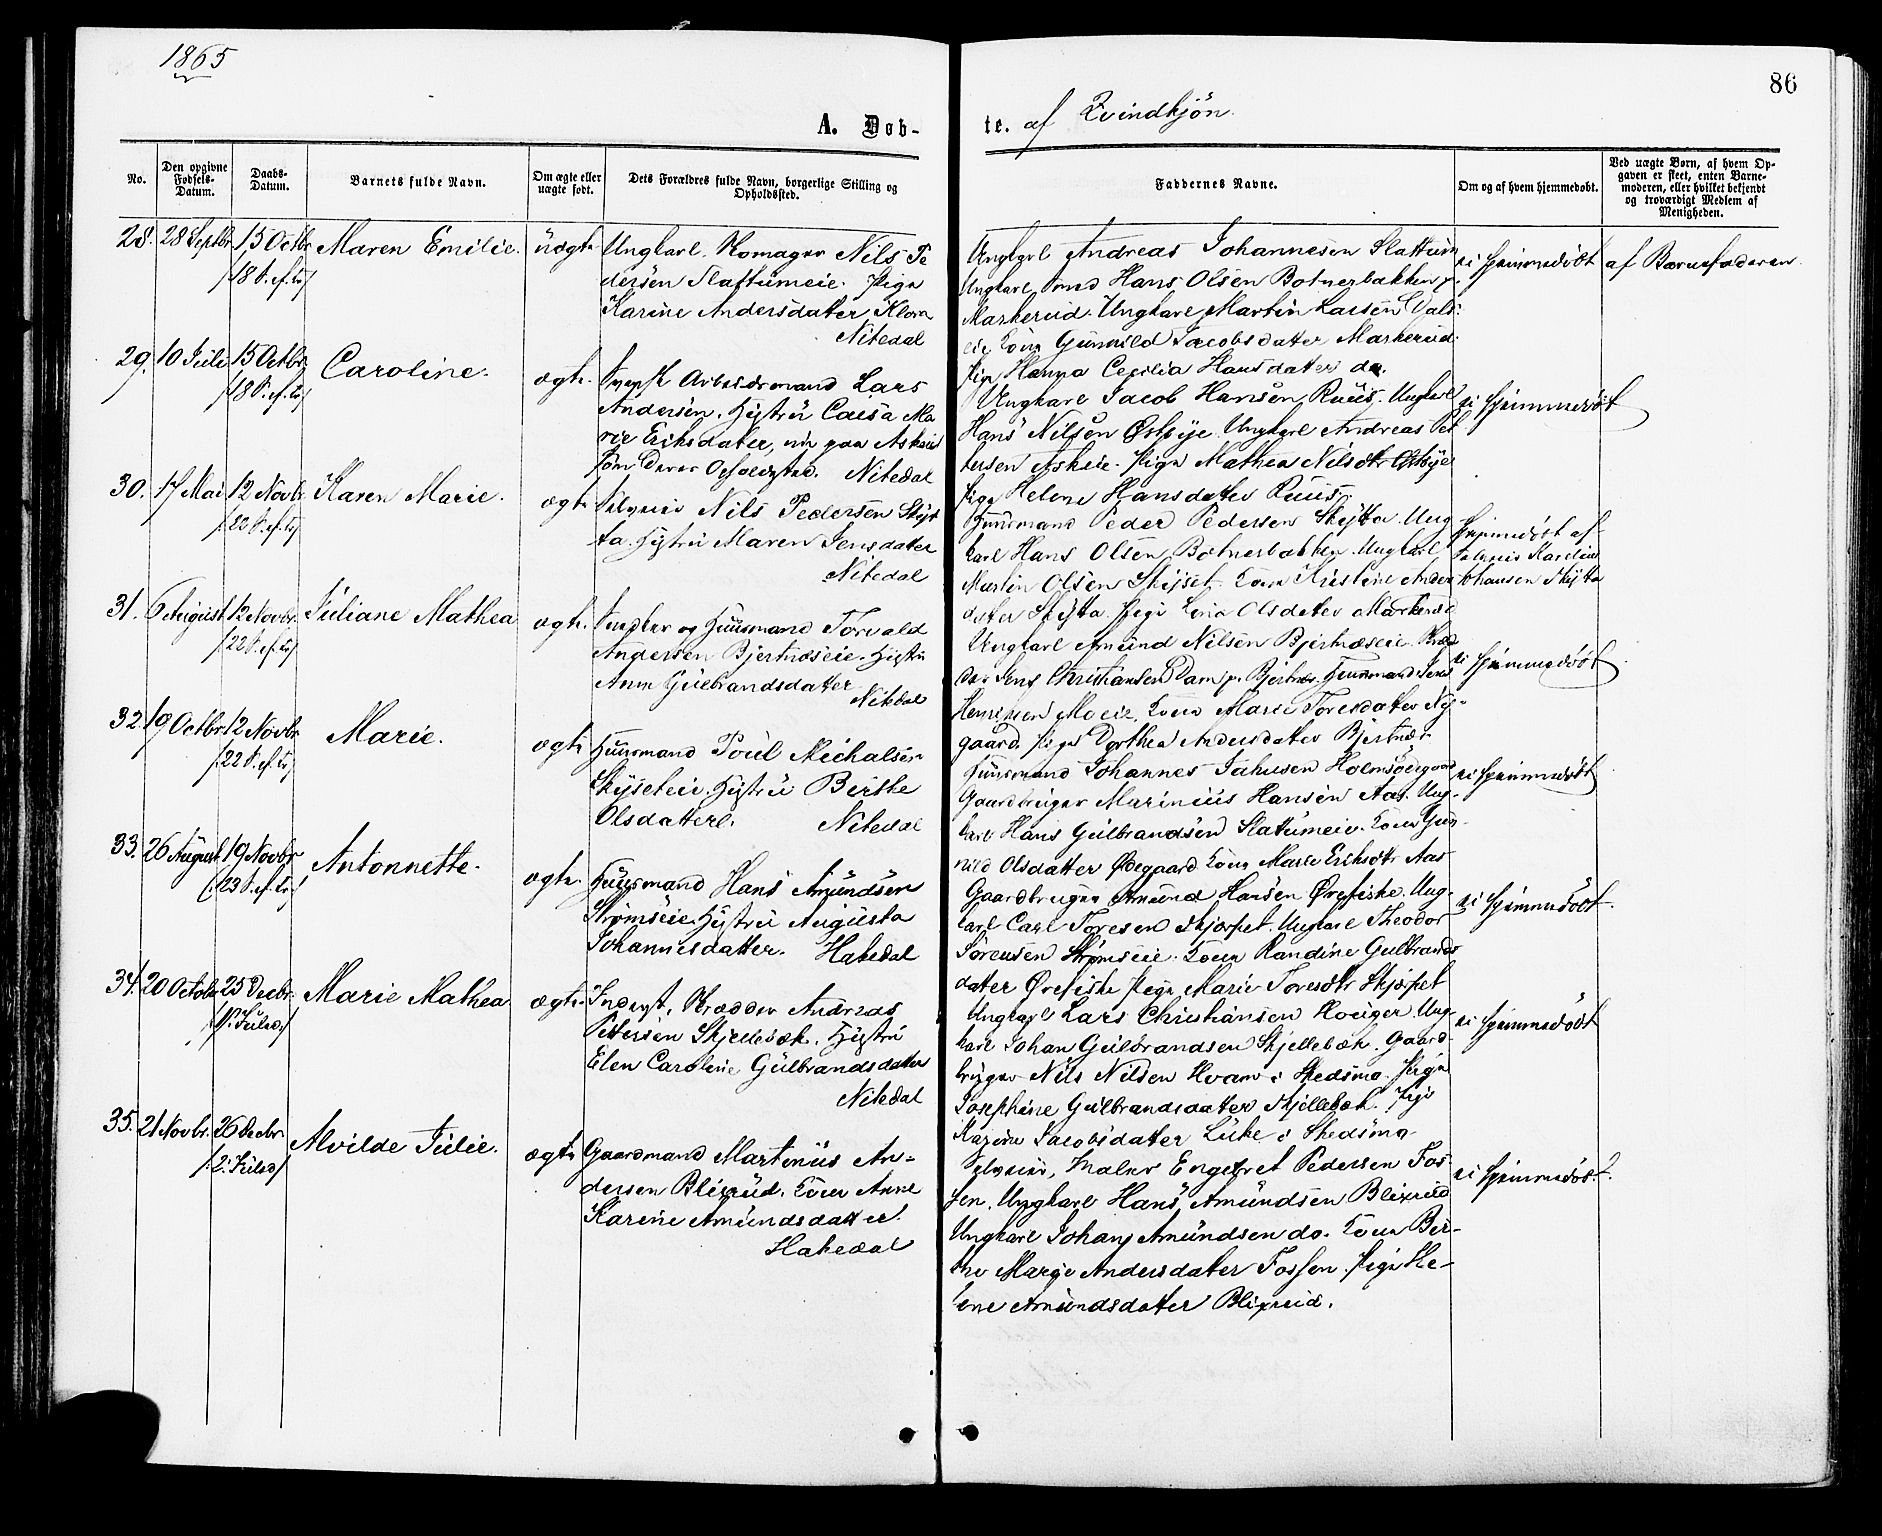 1865
86
A. Døb-
te. af Qvindkjön.
No.
Den opgivne Fødsels-Datum.
Daabs-Datum.
Barnets fulde Navn.
Om ægte eller uægte født.
Dets Forældres fulde Navn, borgerlige Stilling og Opholdssted.
Faddernes Navne.
Om og af hvem hjemmedøbt.
Ved uægte Børn, af hvem Opgaven er skeet, enten Barnemoderen, eller hvilket bekjendt og troværdigt Medlem af Menigheden.
28. 28 Septbr 15 Octbr Maren Emilie. uægte
/18 S. ef. Tr/
Ungkarl, Komager Nils Pe
dersen Slattumeie. Pige
Karine Andersdatter Kloun
Nitedal
Ungkarl Andreas Johannesen Slattum
Ungkarl Hans Olsen Botnerbakken p.
Markerud. Ungkarl Martin Larsen
Kone Gunnild Jacobsdatter Markerud.
Pige Hanna Cecilia Hansdatter do.
ei hjemmedöbt
af Barnefaderen.
29. 10 Juli 15 Octbr Caroline. ægte.
/18 S. ef. Tr/
Svensk Arbeidsmand Lars
Andersen. Hustru Caisa Ma
rie Eriksdatter, nu paa Askeie
som deres Opholdssted. Nitedal
Ungkarl Jacob Hansen Ruus. Ungkarl
Hans Nilsen Østbye. Ungkarl Andreas Pet
tersen Askeie. Pige Mathea Nilsdtr Østbye
Pige Helene Hansdatter Ruus.
ei hjemmedöbt
30. 17 Mai 12 Novbr Karen Marie. ægte
/22 S. ef. Tr/
Selveier Nils Pedersen Skyt
ta. Hustru Maren Jensdatter
Nitedal
Huusmand Peder Pedersen Skytta. Ung
karl Hans Olsen Botnerbakken. Ungkarl
Martin Olsen Skyset. Kone Kristine Anders
datter Skytta. Pige Olsdatter Markerud
Hjemmedöbt af
Selveier
Johansen Skytta
31. 6 August 12 Novbr. Juliane Mathea ægte.
/22 S. ef. Tr/
og Huusmand Torvald
Andersen Bjertnæseie. Hustru
Anne Gulbrandsdatter
Nitedal
Ungkarl Amund Nilsen Bjertnæseie. Kræd
der Jens Christiansen Dam p. Bjertnæs. Huusmand Jens
Henriksen Moeie. Kone Marie Toresdatter Ny-
gaard. Pige Dorthea Andersdatter Bjertnæs
ei hjemmedöbt
32. 19 Octbr 12 Novbr. Marie. ægte
/22 S. ef. Tr/
Huusmand Poul Michalsen
Skyseteie. Hustru Berthe
Olsdatter. Nitedal
Huusmand Johannes Jahnsen
Gaardbruger Marinius Hansen Aas. Ung-
karl Hans Gulbrandsen Slattumeie. Kone Gun-
nild Olsdatter Ødegaard Kone Marie Eriksdtr Aas
ei hjemmedöbt
33. 26 August 19 Novbr Antonnette. ægte.
/23 S. ef. Tr/
Huusmand Hans Amundsen
Strømseie. Hustru Augusta
Johannesdatter. Hakedal
Gaardbruger Amund Hansen Ørefiske. Ung-
karl Carl Toresen Skjørpet. Ungkarl Theodor
Sörensen Strømseie. Kone Randine Gulbrands
datter Ørefiske Pige Marie Toresdtr Skjørpet
ei hjemmedöbt.
34. 20 Octobr 25 Decbr. Marie Mathea ægte.
/1ste Juledag/
Inderst, Krædder Andreas
Pettersen Skjellebæk. Hustru
Elen Caroline Gulbrandsdatter
Nitedal
Ungkarl Lars Christiansen Houger. Ung-
karl Johan Gulbrandsen Skjellebæk. Gaard-
bruger Nils Nilsen Hvam i Skedsmo. Pige
Josephine Gulbrandsdatter Skjellebæk. Pige
Karine Jacobsdatter Lüke i Skedsmo.
ei hjemmedöbt
35. 21 Novbr. 26 Decbr. Alvilde Julie. ægte
/2. Juledag/
Gaardmand Martinius An-
dersen Blixrud. Kone Anne
Karine Amundsdatter.
Hakedal
Selveier, Maler Engebret Pedersen Fos-
sen. Ungkarl Hans Amundsen Blixrud
Ungkarl Johan Amundsen do. Kone Ber-
the Marie Andersdatter Fossen. Pige He-
lene Amundsdatter Blixrud.
ei hjemmedöbt.